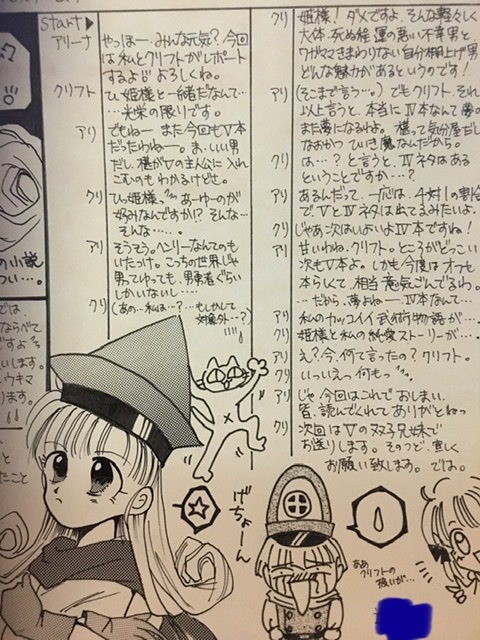 Start▶
アリーナ
やっほー、みんな元気?今回
は私とクリフトがレポート
するよ♡よろしくね。
クリフト
ひ、姫様と一緒だなんて…
…光栄の限りです。
アリ
でもねー また今回もⅤ本
だったわねー。ま、いい男
だし、椹がⅤの主人公に入れ
こむのもわかるけどさ。
クリ
ひっ姫様っ あーゆーのが
好みなんですか!?そんな…
そんな……。
アリ
そうそう。ヘンリーなんてのも
いたっけ。こっちの世界じゃ
男てゆっても、勇者ぐらい
しかいないし…。
クリ
(あの…私は…?…もしかして
対象外…?)
クリ
姫様!ダメですよ、そんな軽々しく
大体、死ぬ程運の悪い不幸男と
ワガママきまわりない自分棚上げ男
どんな魅力があるというのです!
アリ
(そこまで言う…。)でもクリフト、それ
以上言うと、本当にⅣ本なんて夢の
また夢になるわよ。椹って気分屋だし
なおかつひいき魔なんだから。
クリ
は…?と言うと、Ⅳネタはある
ということですか…?
アリ
あるんだって、一応は。4対1の割合
でⅤとⅣネタは出てるみたいよ。
クリ
じゃあ次はいよいよⅣ本ですね!
アリ
甘いわね、クリフト。ところがどっこい
次もⅤ本よ。しかも今度はオフセ
本らしくて、相当意気ごんでるわ。
…だから、夢よねー、Ⅳ本なんて…
アリ
私のカッコイイ武術物語が…
クリ
姫様と私の純愛ストーリーが…。
アリ
え?今、何て言ったの?クリフト。
クリ
いっいえっ何もっ
アリ
じゃ今回はこれでおしまい。
皆、読んでくれてありがとねっ
クリ
次回はⅤの双子兄妹で
お送りします。そのつど、宜しく
お願い致します。では。
げちょーん
ああ
クリフトの
扱いが…
の小説
つい…。
では
ならべて
ですよ
いします。
ウキマ
ります。
と
たこと